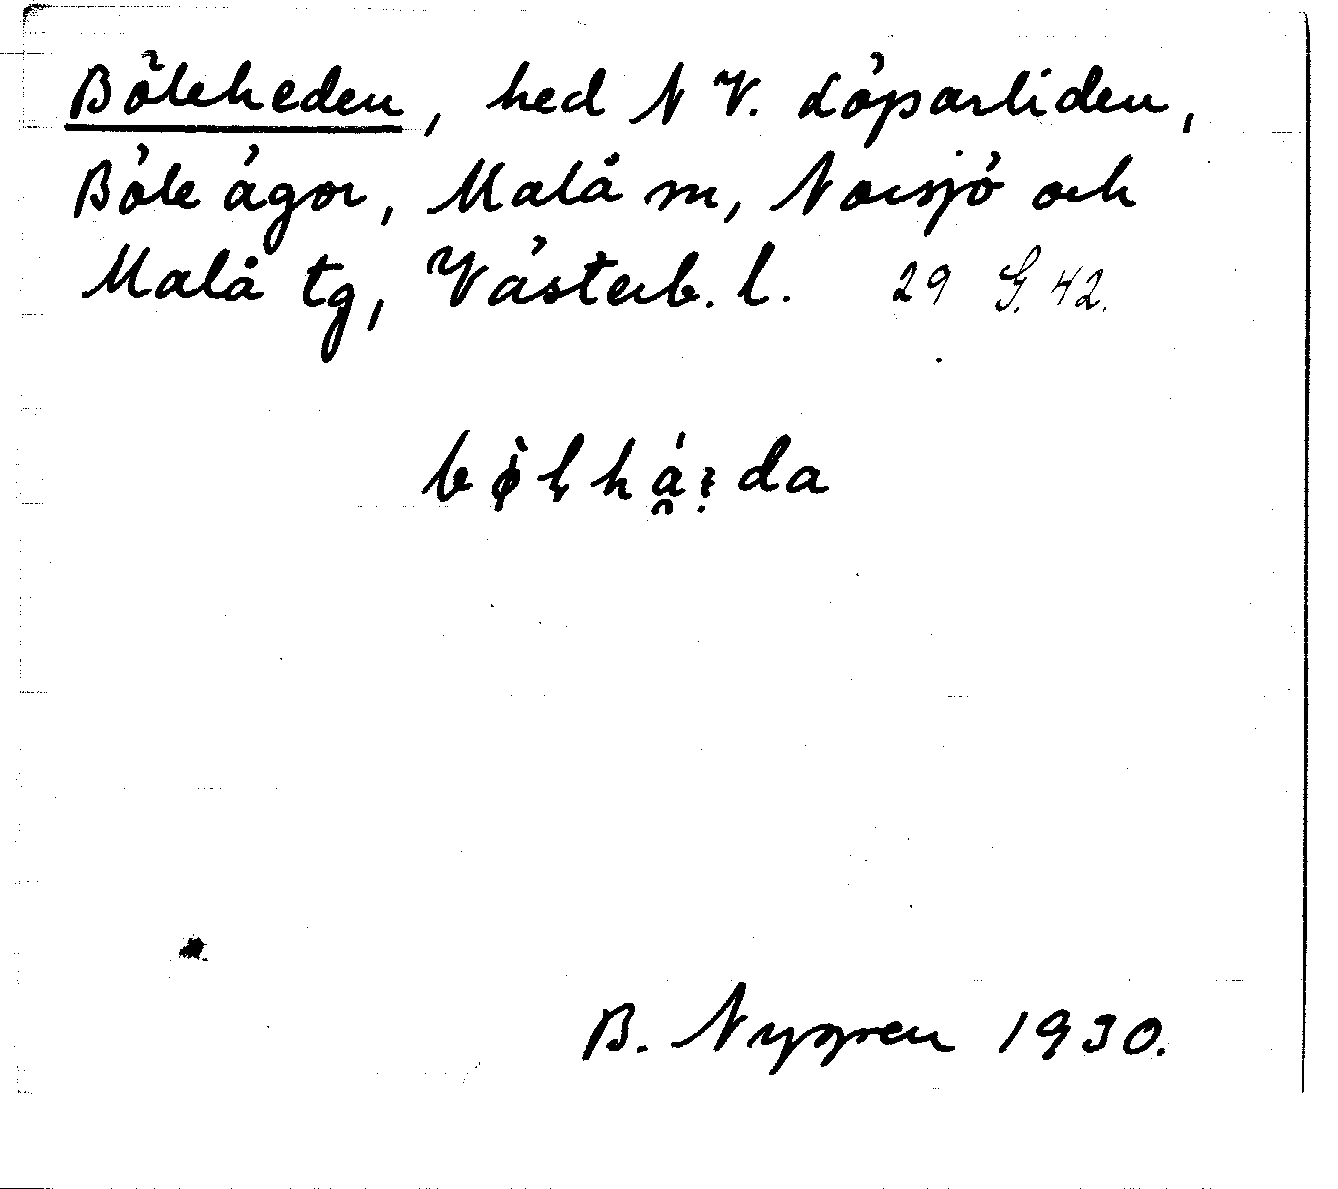 Böleheden, hed N V. Löparliden,
Böle ägor, Malå sn, Norsjö och
Malå tg, Västerb. l. 29 G. 42.
B. Nygren 1930.